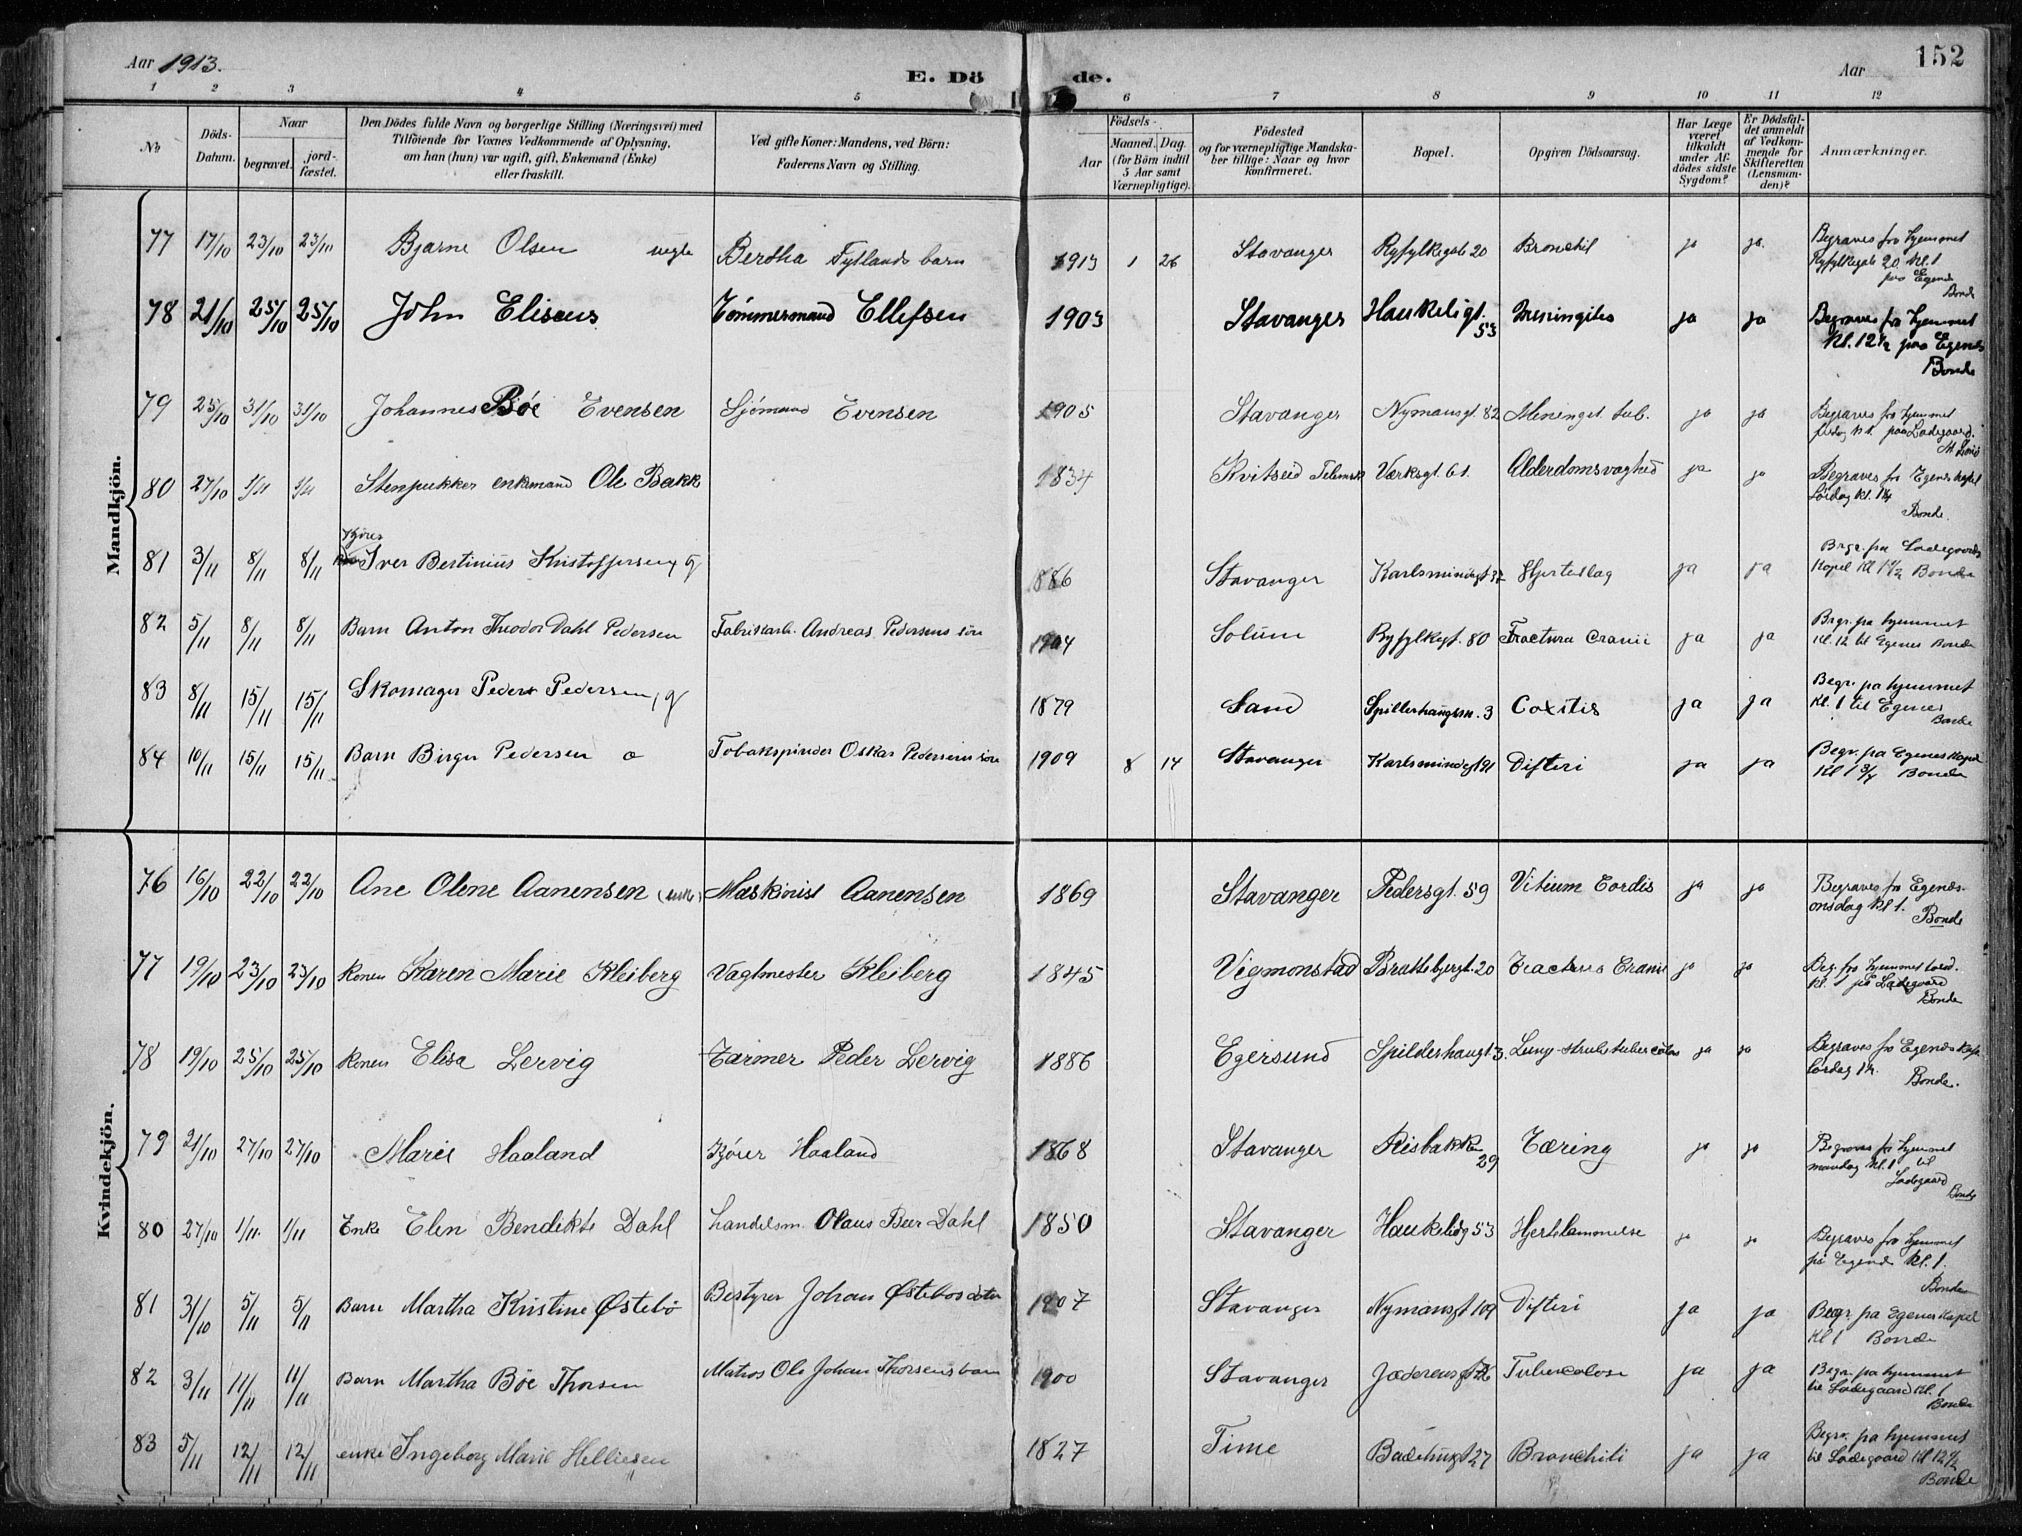 Aar 1913.
E. Dö de.
Aar
152
1 2 3 4 5 6 7 8 9 10 11 12
No
Döds-Datum.
Naar
begravet.
jord-fæstet.
Den Dödes fulde Navn og borgerlige Stilling (Næringsvei) med
Tilföiende for Voxnes Vedkommende af Oplysning,
om han (hun) var ugift, gift, Enkemand (Enke)
eller fraskilt.
Ved gifte Koner: Mandens, ved Börn:
Faderens Navn og Stilling.
Födsels-
Aar
Maaned. Dag.
(for Börn indtil
5 Aar samt
Værnepligtige).
Födested
og for værnepligtige Mandska-
ber tillige: Naar og hvor
konfirmeret.
Bopæl.
Opgiven Dödsaarsag.
Har Læge
været
tilkaldt
under Af-
dödes sidste
Sygdom?
Er Dödsfal-
det anmeldt
af Vedkom-
mende for
Skifteretten
(Lensman-
den)?
Anmærkninger.
Mandkjön.
77 17/10 23/10 23/10 Bjarne Olsen uegte Bertha Fytlands barn 1913 1 26 Stavanger Ryfylkegate 20 Bronchit ja ja Begraves fra hjemmet
Ryfylkegate 20 kl. 1
paa Egenes
Bonde
78 21/10 25/10 25/10 John Eliseus Tömmermand Ellefsen 1903 Stavanger Haukeligt. 53 Meningites ja ja Begraves fra hjemmet
kl. 12 1/2 paa Egenes
Bonde
79 25/10 31/10 31/10 Johannes Bøe Evensen Sjömand Evensen 1905 Stavanger Nymansgt. 82 Meningit. tub. ja ja Begraves fra hjemmet
fredag kl. 1. paa Ladegaard.
80 27/10 1/11 1/11 Stenpukker enkemand Ole Bakk 1834 Kvitseid Telemark Værksgt. 61. Alderdomsvaghed ja ja Begraves fra Egenes Kapel
Lördag kl. 1 1/4
Bonde.
81 3/11 8/11 8/11 Kjörer
Iver Bertinius Kristoffersen, g 1886 Stavanger Karlsmindegt 32 Hjerteslag ja ja Begr. fra Ladegaards
Kapel Kl 1 1/2 Bonde
82 5/11 8/11 8/11 Barn Anton Theodor Dahl Pedersen Fabrikarb. Andreas Pedersens sön 1904 Solum Ryfylkegt. 80 Fractura Cranii ja ja Begr. fra hjemmet
kl. 12 til Egenes Bonde
83 8/11 15/11 15/11 Skomager Peder Pedersen, g 1879 Sand Spilderhaugsm. 3 Coxitis ja ja Begr. fra hjemmet
Kl. 1 til Egenes
Bonde
84 10/11 15/11 15/11 Barn Birger Pedersen a Tobakspinder Oskar Pedersens sön 1909 8 14 Stavanger Karlsmindegt 91 Difteri ja ja Begr. fra Egenes Kapel
Kl 1 3/4 Bonde
Kvindekjön.
76 16/10 22/10 22/10 Ane Olene Aanensen (enke) Maskinist Aanensen 1869 Stavanger Pedersgt. 59 Vitium Cordis ja ja Begraves fra Egenes
onsdag Kl 1.
Bonde
77 19/10 23/10 23/10 Konen Karen Marie Kleiberg Vagtmester Kleiberg 1845 Vigmonstad Brattebjergt. 20 Fractura Cranii ja ja Beg. fra hjemmet torsd.
Kl. 1 på Ladegaard
Bonde
78 19/10 25/10 25/10 Konen Elisa Lervig Farmer Peder Lervig 1886 Egersund Spilderhaugt 3. Lunge-Strubetuberculos ja ja Begraves fra Egenes Kap.
lördag 1 1/4.
Bonde.
79 21/10 27/10 27/10 Marie Haaland Kjörer Haaland 1868 Stavanger Risbakken 29 Tæring ja ja Begraves fra hjemmet
mandag kl. 1 til
Ladegaard
Bonde
80 27/10 1/11. 1/11 Enke Elen Bendikte Dahl Handelsm. Olaus Beer Dahl 1850 Stavanger Haukeligt 53 Hjertelammelse ja ja Begraves fra hjemmet
på Egenes Kl. 1.
Bonde
81 31/10 5/11 5/11 Barn Martha Kristine Østebö Bestyrer Johan Østebös datter 1907 Stavanger Nymansgt 109 Difteri ja ja Begr. fra Egenes Kapel
Kl 1 Bonde
82 3/11 11/11 11/11 Barn Martha Bøe Thorsen Matros Ole Johan Thorsens barn 1900 Stavanger Tuberculose ja ja Begr. fra hjemmet
til Ladegaard Kl. 1
Bonde
83 5/11 12/11 12/11 enke Ingeborg Marie Helliesen 1827 Time Badehusgt 27 Bronchiti ja ja Begr. fra hjemmet
til Ladegaard Kl 12 1/2
Bonde